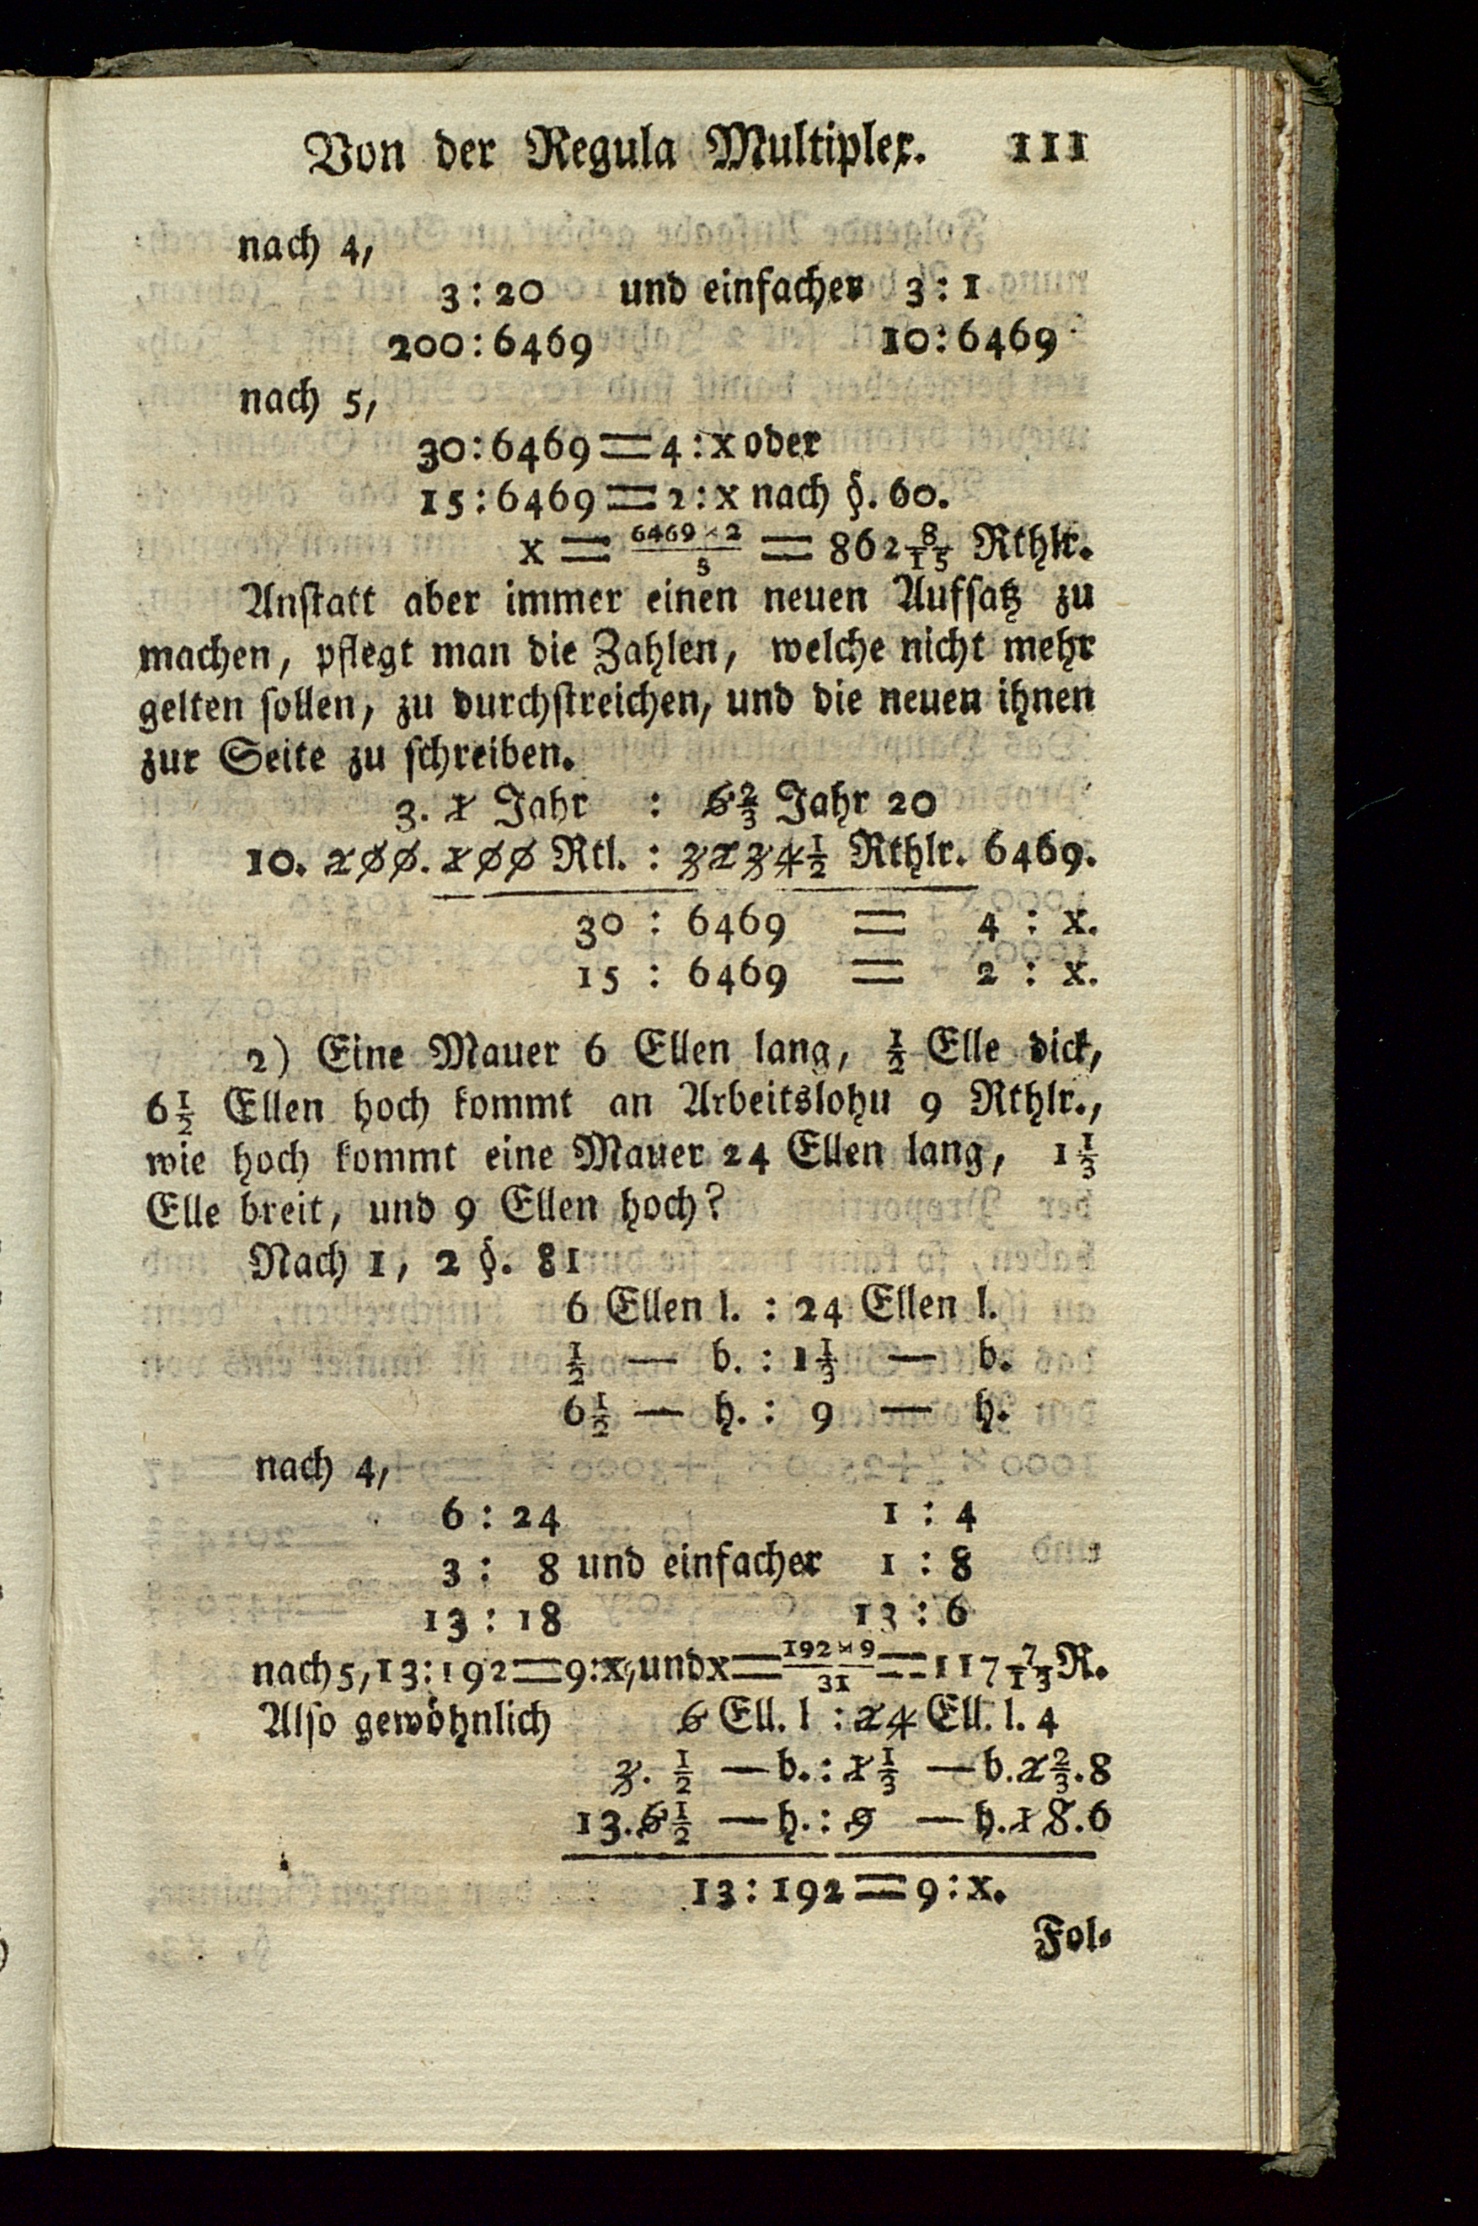 Von der Regula Multiplex. 111
nach 4,
3 : 20 und einfacher 3 : 1
200 : 6469 10 : 6469
nach 5,
30 : 6469 = 4 : x oder
15 : 6469 = 2 : x nach §. 60.
x = 6469 × 2/5 = 862 8/15 Rthlr.
Anstatt aber immer einen neuen Aufsatz zu
machen, pflegt man die Zahlen, welche nicht mehr
gelten sollen, zu durchstreichen, und die neuen ihnen
zur Seite zu schreiben.
3. 1 Jahr : 6 2/3 Jahr 20
10. 200. 100 Rtl. : 3234 1/2 Rthlr. 6469.
30 : 6469 = 4 : x.
15 : 6469 = 2 : x.
2) Eine Mauer 6 Ellen lang, 1/2 Elle dick,
6 1/2 Ellen hoch kommt an Arbeitslohu 9 Rthlr.,
wie hoch kommt eine Mauer 24 Ellen lang, 1 1/3
Elle breit, und 9 Ellen hoch?
Nach 1, 2 §. 81
6 Ellen l. : 24 Ellen l.
1/2 — b. : 1 1/3 — b.
6 1/2 — h. : 9 — h.
nach 4,
6 : 24 1 : 4
3 : 8 und einfacher 1 : 8
13 : 18 13 : 6
nach 5, 13 : 192 = 9 : x, und x = 192 × 9/31 = 117 7/13 R.
Also gewöhnlich 6 Ell. l : 24 Ell. l. 4
3. 1/2 — b. : 1 1/3 — b. 2 2/3. 8
13. 6 1/2 — h. : 9 — h. 18. 6
13 : 192 = 9 : x.
Fol-